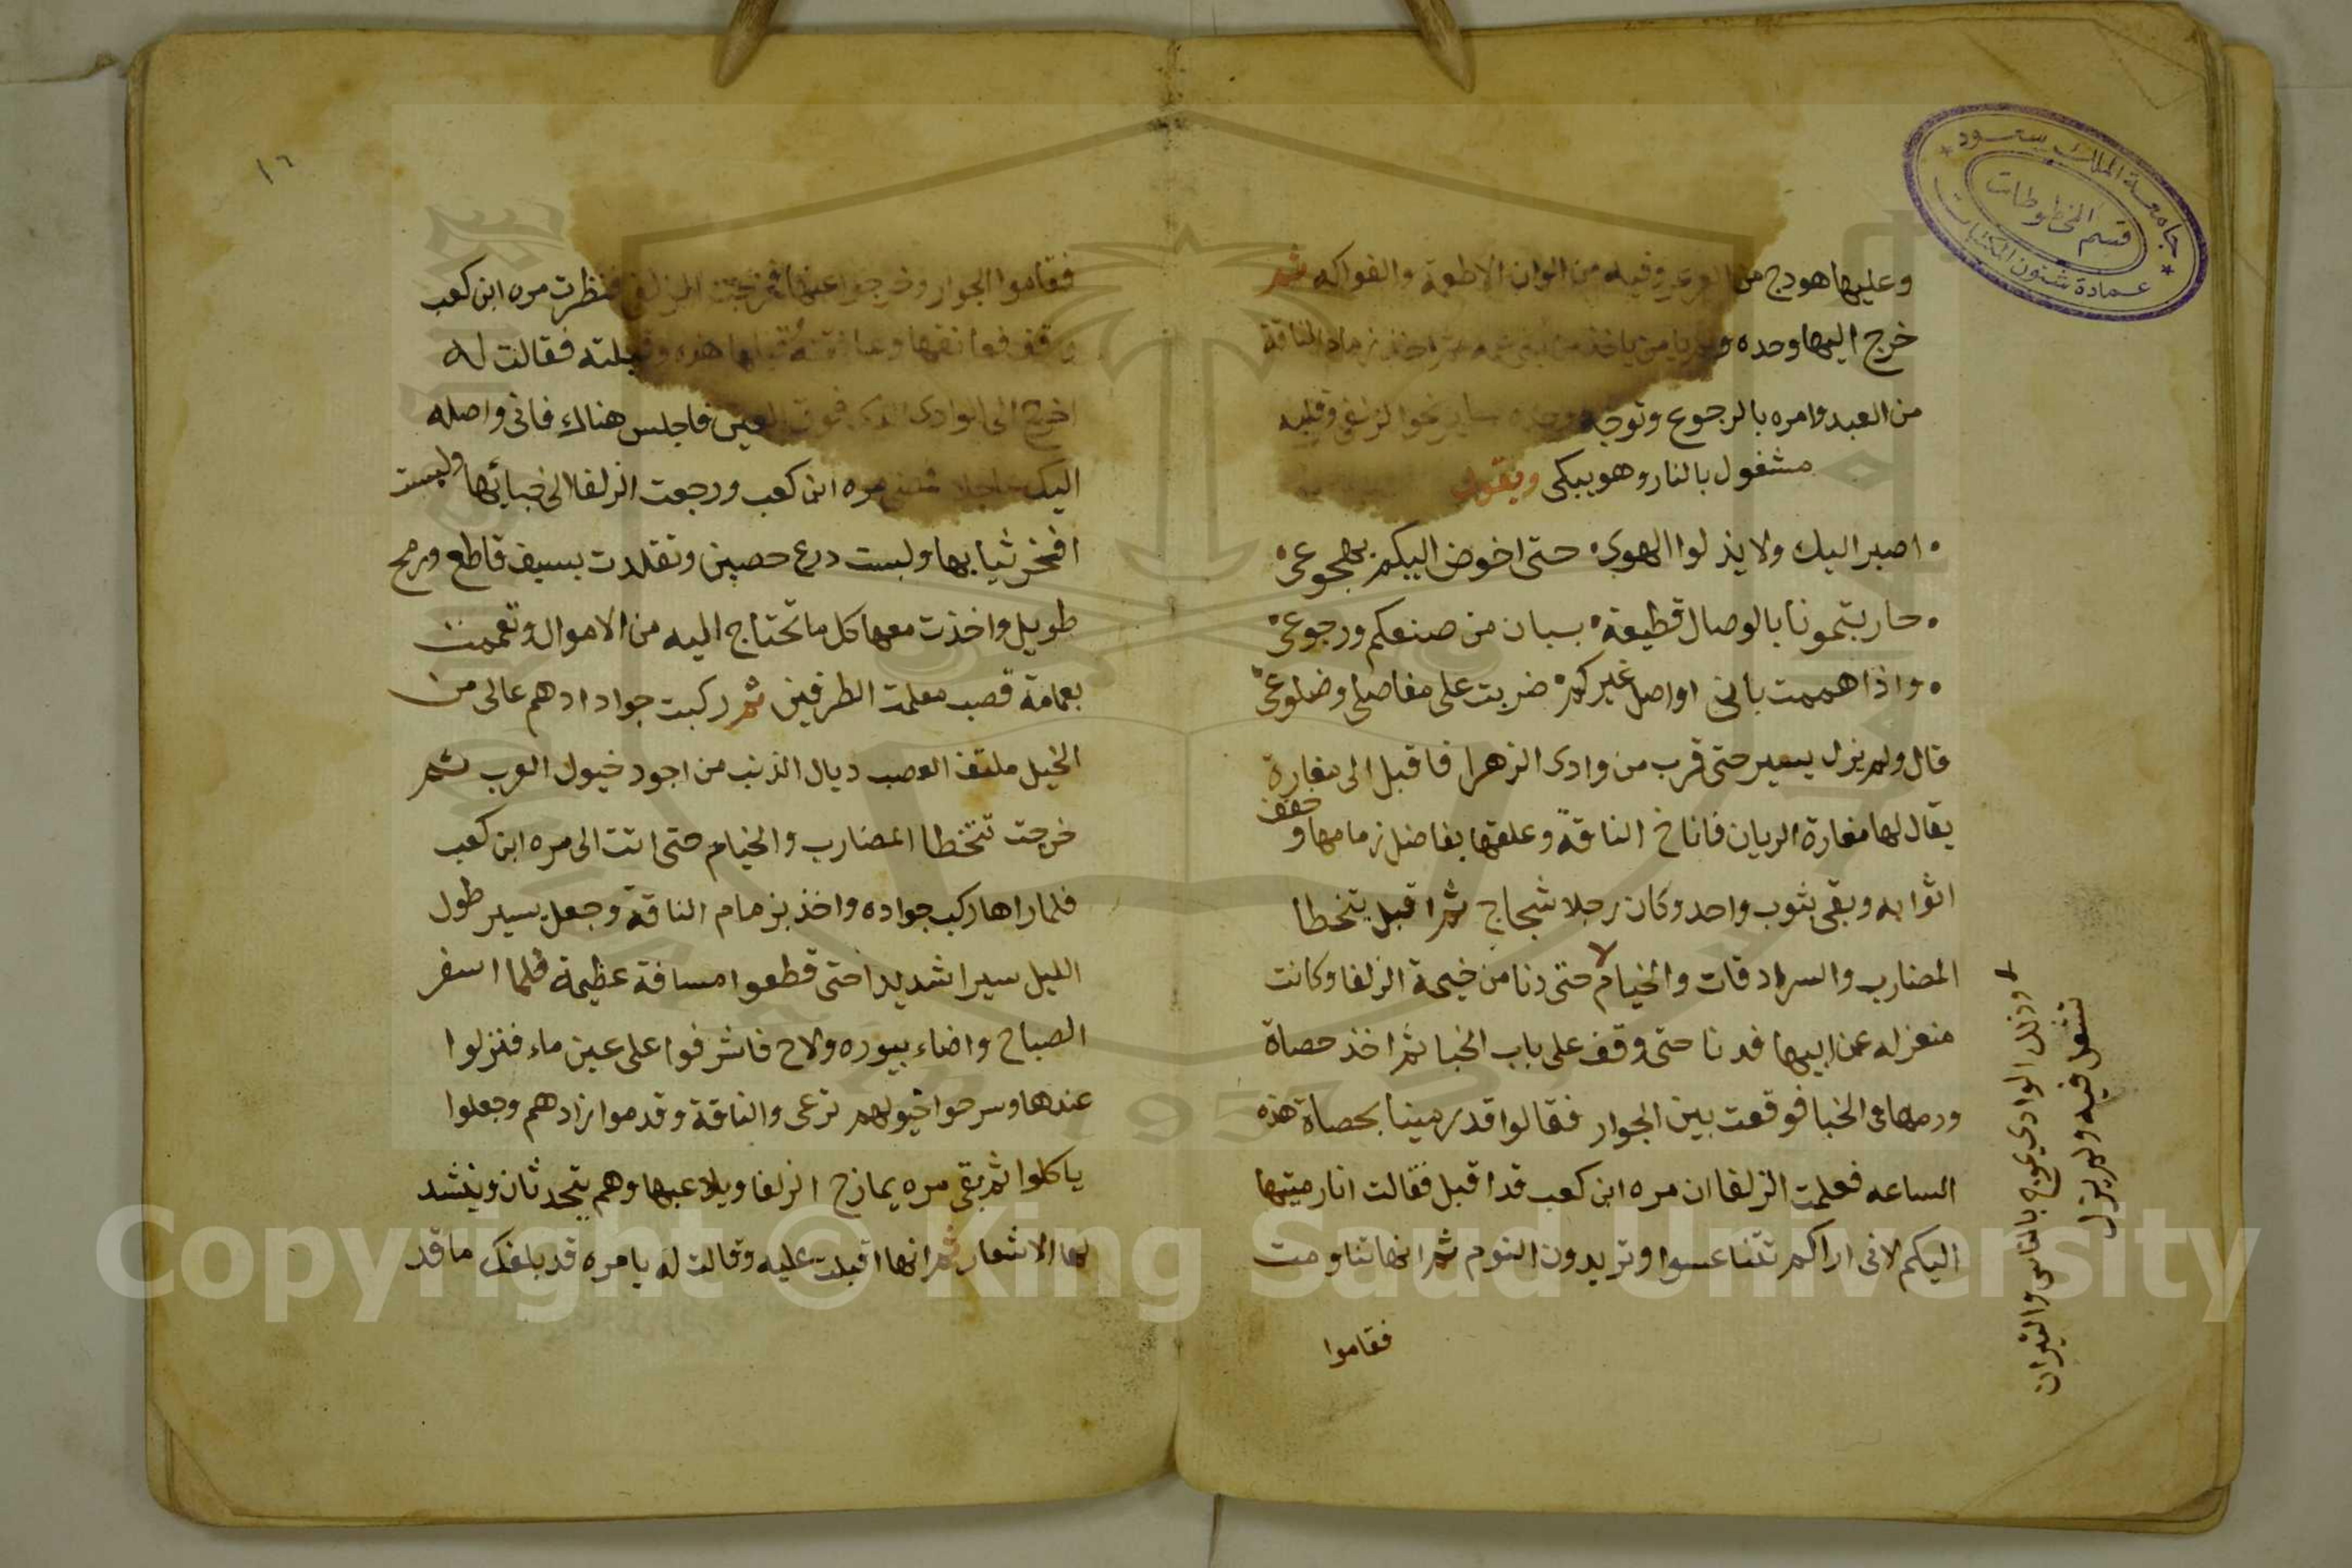 جامعة الملك سعود
قسم المخطوطات
عمادة شئون المكتبات
وعليها هودج من وفيه من الوان الاطعمة والفواكه ثم
خرج اليها وحده زمام الناقة
من العبد وامره بالرجوع وتوجه وقلبه
مشغول بالنار وهو يبكى ويقول
اصبر اليك ولا يذلوا الهوى حتى اخوض اليكم بهجوعى
حاربتمونا بالوصال قطيعة بسبان من صنعكم ورجوعى
واذا هممت بانى اواصل غيركم ضربت على مفاصلى وضلوعى
قال ولم يزل يسير حتى قرب من وادى الزهرا فاقبل الى مغارة
يقال لها مغارة الريان فاناخ الناقة وعلقها بفاضل زمامها وخفف
اثوابه وبقى بثوب واحد وكان رجلا شجاج ثم اقبل يتخطا
المضارب والسرادقات والخيام حتى دنا من خيمة الزلفا وكانت
منعزله عن ابيها فدنا حتى وقف على باب الخبا ثم اخذ حصاة
ورمها فى الخبا فوقعت بين الجوار فقالوا قد رمينا بحصاة هذه
الساعه فعلمت الزلفا ان مره ابن كعب قد اقبل فقالت انا رميتها
اليكم لانى اراكم تتناعسوا وتريدون النوم ثم انها تناومت
فقاموا
الوادى يموج بالناس والنيران
تشعل فيه ولم يزل
١٦
فقاموا الجوار وخرجوا عنها فنظرت مره ابن كعب
فقالت له
اخرج الى الوادى فاجلس هناك فانى واصله
اليك مره ابن كعب ورجعت الزلفا الى خبائها ولبست
افخر ثيابها ولبست درع حصين وتقلدت بسيف قاطع ورمح
طويل واخذت معها كل ما تحتاج اليه من الاموال وتعممت
بعمامة قصب معلمت الطرفين ثم ركبت جواد ادهم عالى من
الخيل ملتف العصب ديال الذنب من اجود خيول العرب ثم
خرجت تتخطا المضارب والخيام حتى اتت الى مره ابن كعب
فلما راها ركب جواده واخذ بزمام الناقة وجعل يسير طول
الليل سيرا شديدا حتى قطعوا مسافة عظيمة فلما اسفر
الصباح واضاء بيوره ولاح فاشرفوا على عين ماء فنزلوا
عندها وسرحوا خيولهم ترعى والناقة وقدموا زادهم وجعلوا
ياكلوا ثم بقى مره يمازح الزلفا ويلاعبها وهم يتحدثان وينشد
لها الاشعار ثم انها اقبلت عليه وقالت له يا مره قد بلغك ما قد
Copyright © King Saud University